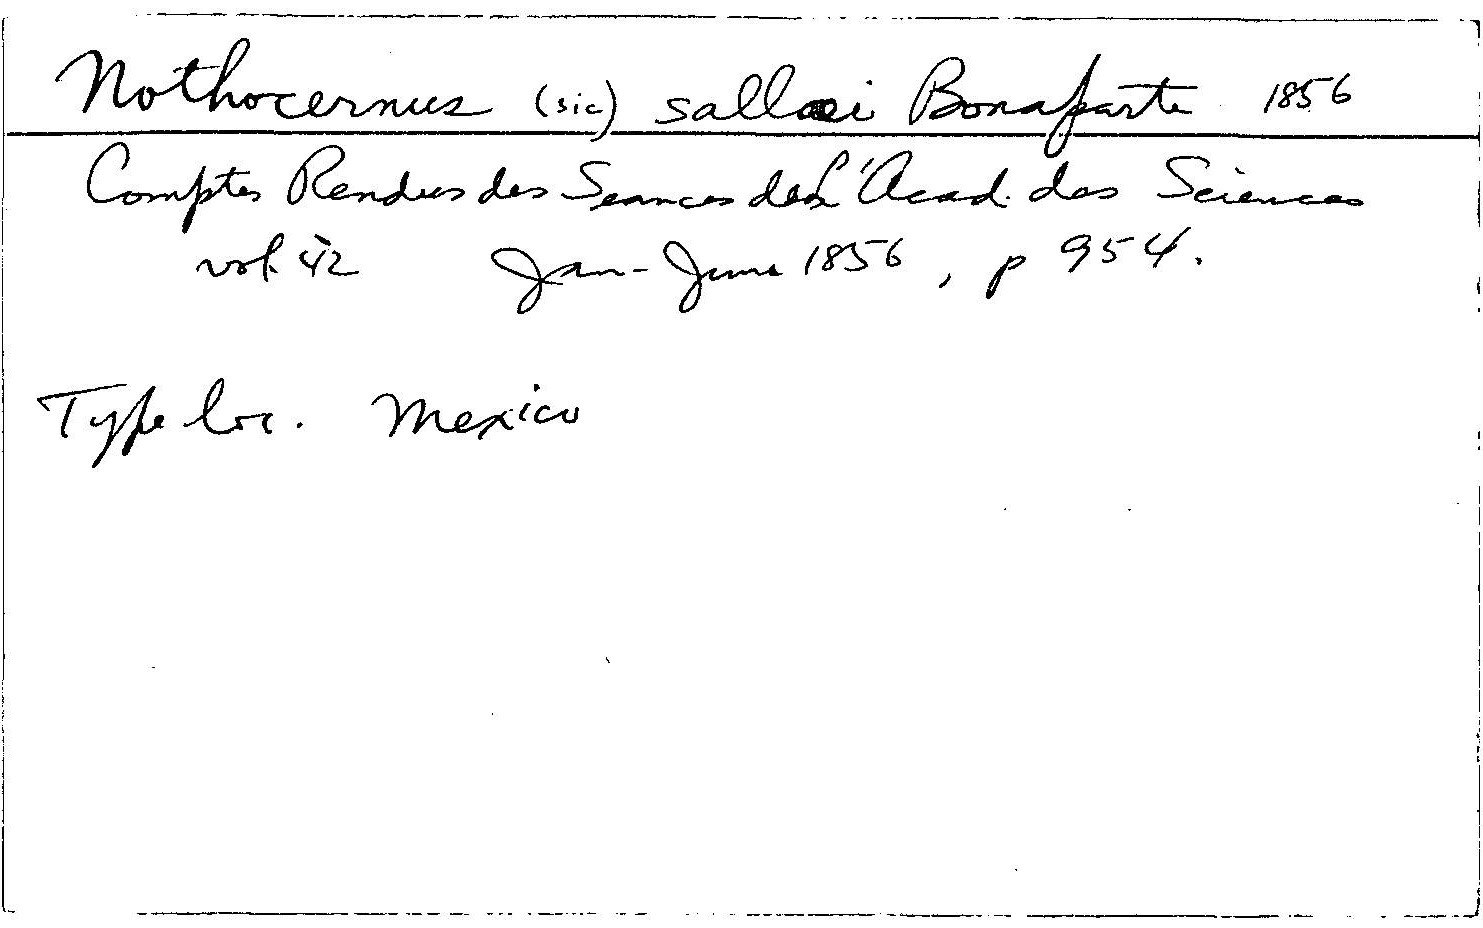 Nothocernus (sic) sallaei Bonaparte 1856
Comptes Rendus des Seances de L'Acad. des Sciences
vol. 42 Jan-June 1856, p 954.
Type loc. Mexico